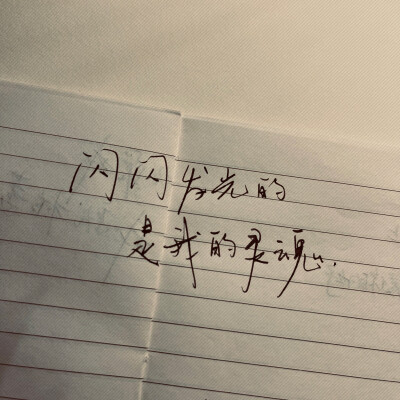 闪闪发光的
是我的灵魂.